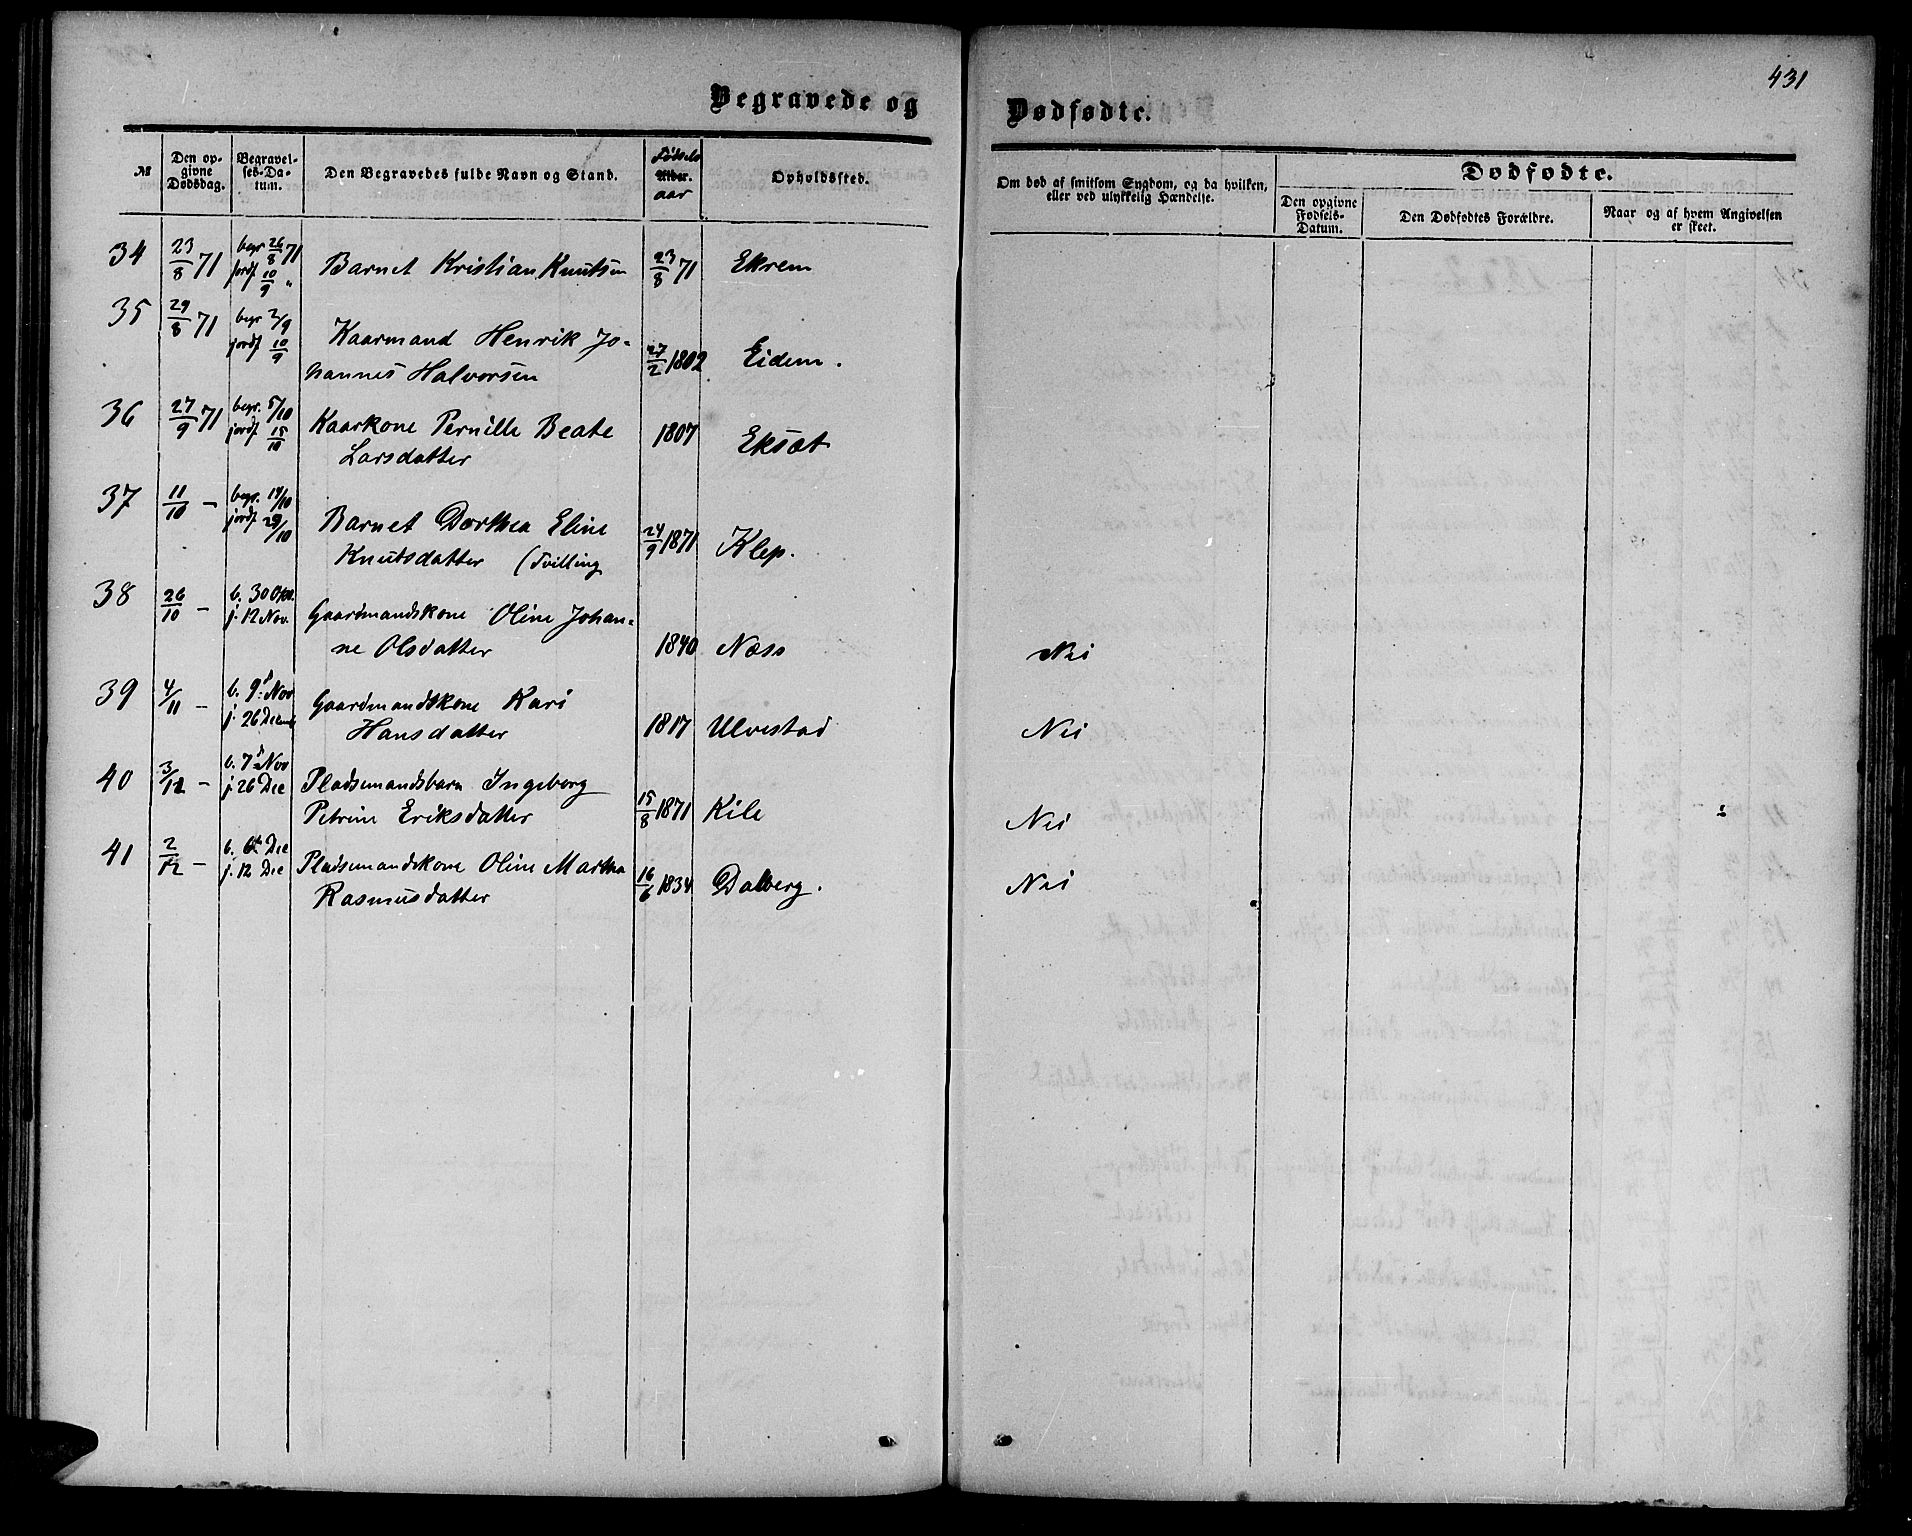 431
Begravede og Dødfødte.
№ Den opgivne Dødsdag. Begravelses-Datum. Den Begravedes fulde Navn og Stand. Fødselsaar Alder. Opholdssted. Om død af smitsom Sygdom, og da hvilken, eller ved ulykkelig Hændelse. Dødfødte. Den opgivne Fødsels-Datum. Den Dødfødtes Forældre. Naar og af hvem Angivelsen er skeet.
34 23/8 71 begr 26/8 71 Barnet Kristian Knutsen 23/8 71 Ekrem
jordf 10/9 "
35 29/8 71 begr 2/9 Kaarmand Henrik Jo-
jordf 10/9 hannes Halvorsen 27/2 1802 Eidem.
36 27/9 71 begr. 5/10 Kaarkone Pernille Beate 1807 Eksæt
jordf 15/10 Larsdatter
37 11/10 - begr. 14/10 Barnet Dorthea Eline
jordf 29/10 Knutsdatter (Tvilling 24/9 1871 Klep.
38 26/10 - b. 30 Okt. Gaardmandskone Oline Johan-
j. 12 Nov. ne Olsdatter 1840 Næss Nei
39 4/11 - b. 9: Nov Gaardmandskone Kari
j. 26 Decemb Hansdatter 1817 Ulvestad Nei
40 3/12 - b. 7 Nov Pladsemandsbarn Ingeborg
j. 26 Dec Petrine Eriksdatter 15/8 1871 Kile Nei
41 2/12 - b. 6te Dec Pladsemandskone Oline Martha
j. 12 Dec Rasmusdatter 16/6 1834 Dalberg. Nei